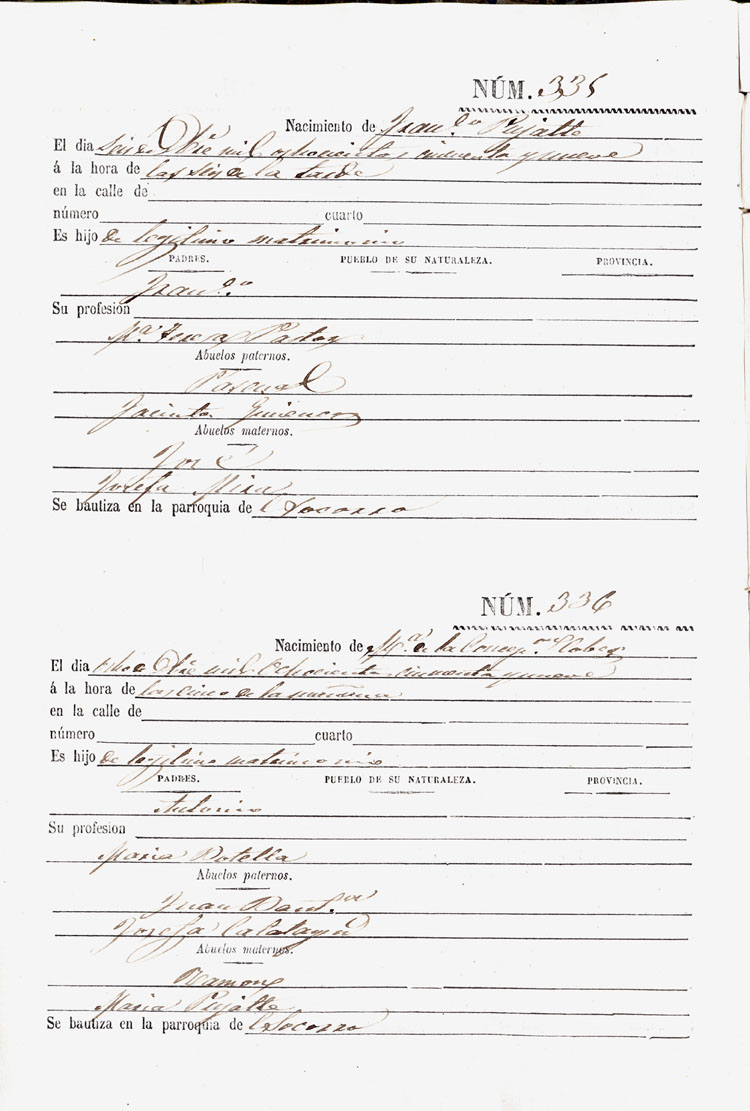 NÚM. 335
Nacimiento de Fran.co Pujalte
El dia Seis de Dbre mil ochocientos cincuenta y nueve
á la hora de las seis de la tarde
en la calle de
número cuarto
Es hijo de legitimo matrimonio
PADRES. PUEBLO DE SU NATURALEZA. PROVINCIA.
Fran.co
Su profesión
Ma. Teresa Pastor
Abuelos paternos.
Pascual
Jacinta
Abuelos maternos.
José
Josefa Mira
Se bautiza en la parroquia de el Socorro
NÚM. 336
Nacimiento de Ma. de la Concepn.
El dia Ocho de Dbre mil Ochocientos cincuenta y nueve
á la hora de las cinco de la mañana
en la calle de
número cuarto
Es hijo de legitimo matrimonio
PADRES. PUEBLO DE SU NATURALEZA. PROVINCIA.
Antonio
Su profesión
Maria Botella
Abuelos paternos.
Juan Baut.ta
Josefa Calatayud
Abuelos maternos.
Ramon
Maria Pujalte
Se bautiza en la parroquia de el Socorro